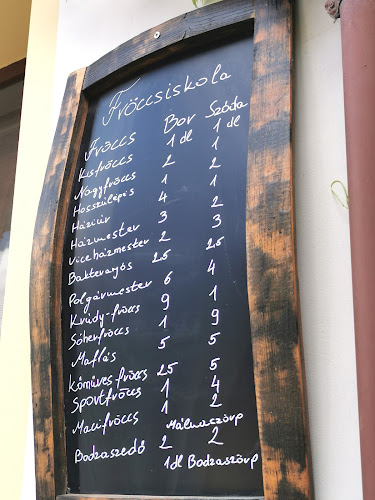 Fröccsiskola
Fröccs Bor Szóda
Kisfröccs 1 dl 1 dl
Nagyfröccs 2 1
Hosszúlépés 1 2
Háziúr 4 1
Házmester 3 2
Viceházmester 2 3
Bakteranyós 25 25
Polgármester 6 4
Krúdy-fröccs 9 1
Sóherfröccs 1 9
Maflás 5 5
Kőműves-fröccs 25 5
Sportfröccs 1 4
Macifröccs 1 2
Málnaszörp
Bodzaszedő 2 2
1dl Bodzaszörp